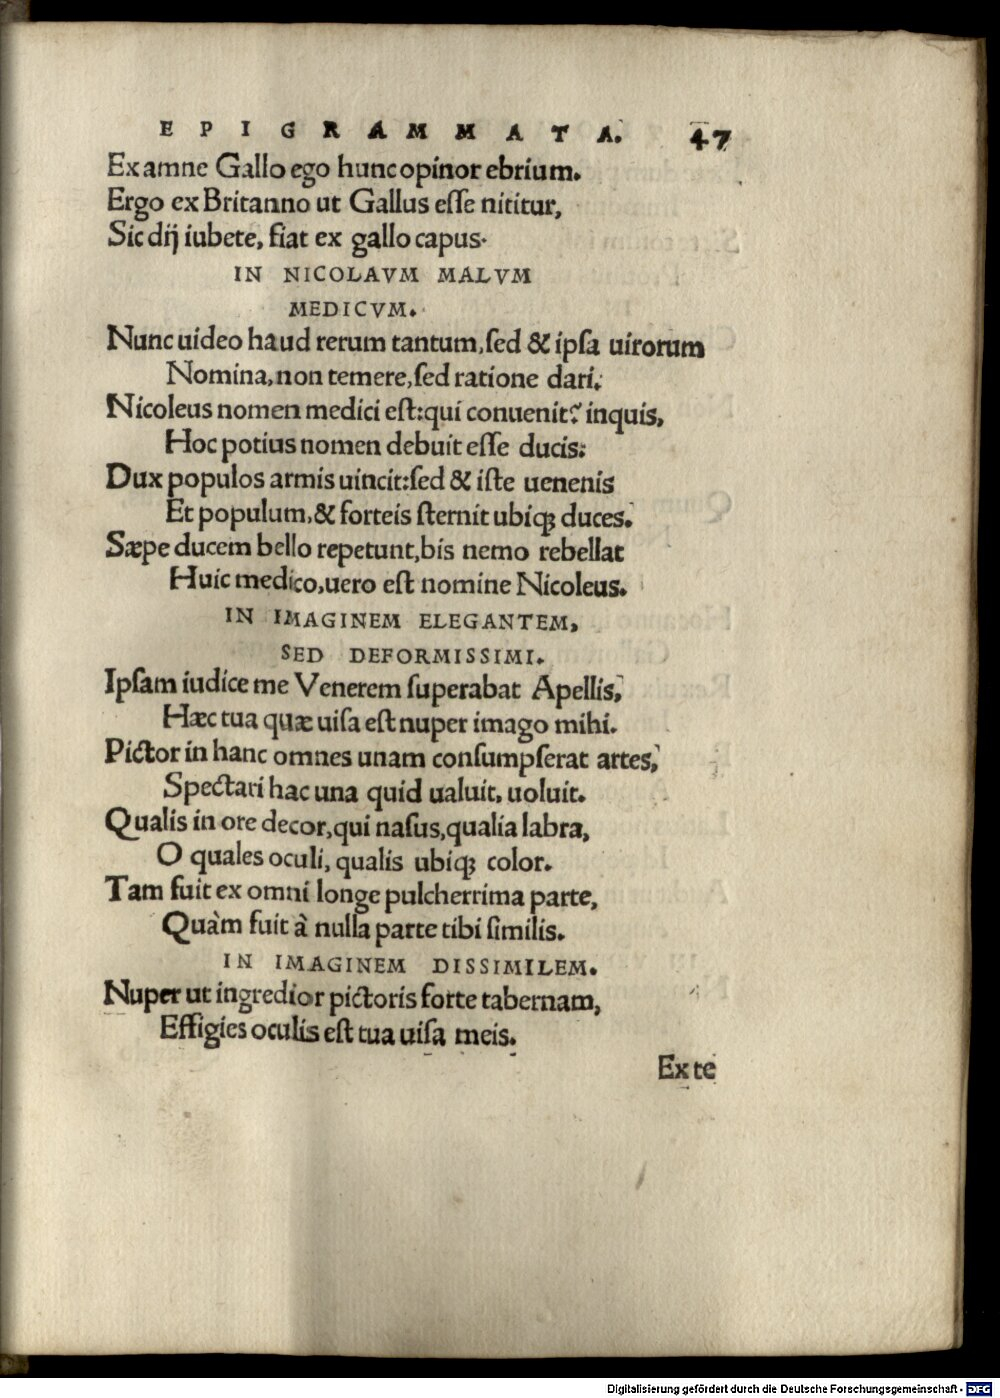 EPIGRAMMATA. 47
Ex amne Gallo ego hunc opinor ebrium.
Ergo ex Britanno ut Gallus eſſe nititur,
Sic dij iubete, fiat ex gallo capus·
IN NICOLAVM MALVM
MEDICVM.
Nunc uideo haud rerum tantum, ſed & ipſa uirorum
Nomina, non temere, ſed ratione dari.
Nicoleus nomen medici eſt: qui conuenit? inquis,
Hoc potius nomen debuit eſſe ducis:
Dux populos armis uincit: ſed & iſte uenenis
Et populum, & forteis ſternit ubiqꝫ duces.
Sæpe ducem bello repetunt, bis nemo rebellat
Huic medico, uero eſt nomine Nicoleus.
IN IMAGINEM ELEGANTEM,
SED DEFORMISSIMI.
Ipſam iudice me Venerem ſuperabat Apellis,
Hæc tua quæ uiſa eſt nuper imago mihi.
Pictor in hanc omnes unam conſumpſerat artes,
Spectari hac una quid ualuit, uoluit.
Qualis in ore decor, qui naſus, qualia labra,
O quales oculi, qualis ubiqꝫ color.
Tam fuit ex omni longe pulcherrima parte,
Quàm fuit à nulla parte tibi ſimilis.
IN IMAGINEM DISSIMILEM.
Nuper ut ingredior pictoris forte tabernam,
Effigies oculis eſt tua uiſa meis.
Ex te
Digitalisierung gefördert durch die Deutsche Forschungsgemeinschaft - DFG